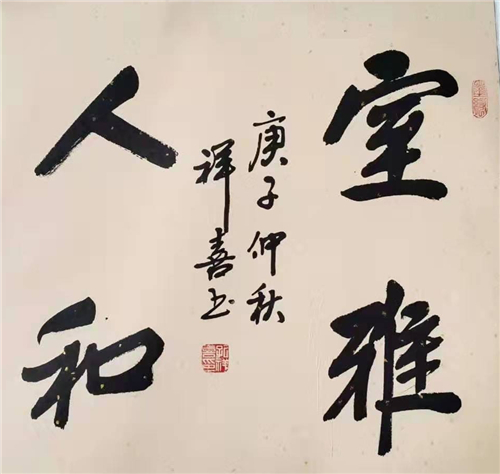 室雅
人和
庚子仲秋
祥喜书